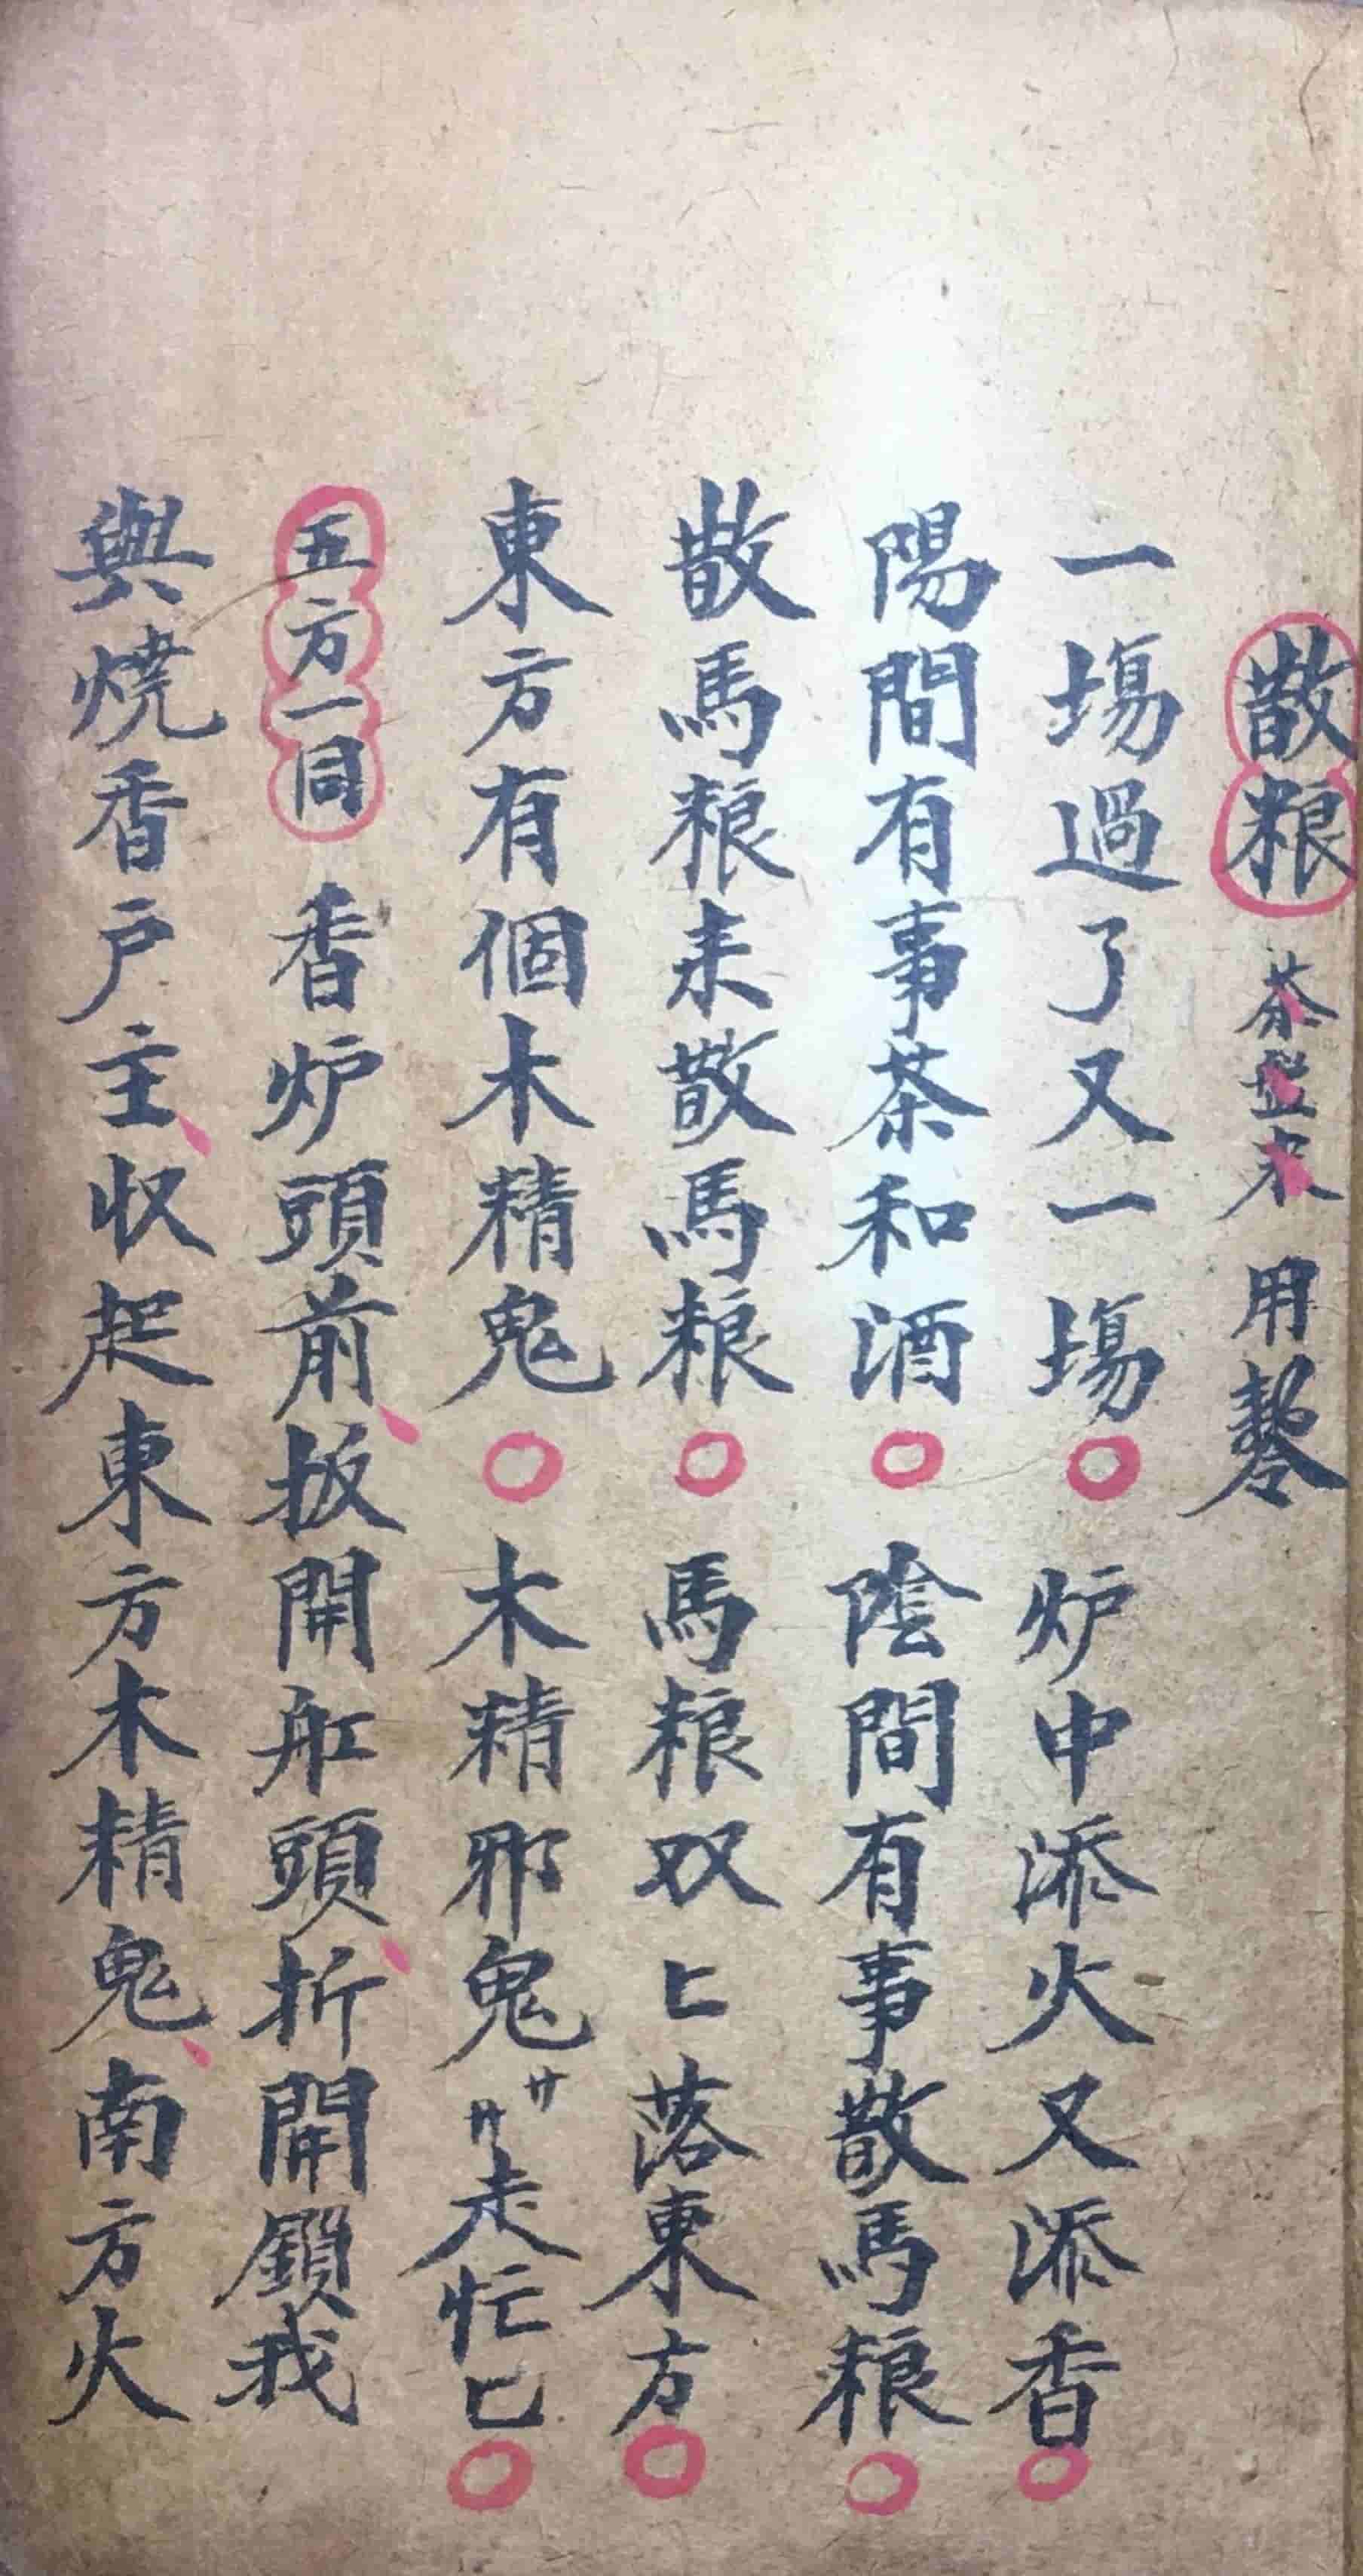 散粮 茶盐米 用
一塲過了又一塲○炉中添火又添香○
陽間有事茶和酒○陰間有事散馬粮○
散馬粮来散馬粮○馬粮双〻落東方○
東方有個木精鬼○木精邪鬼〻〻走忙匕○
五方一同 香炉頭前扳開舡頭折開鎖我
與燒香户主收起東方木精鬼南方火